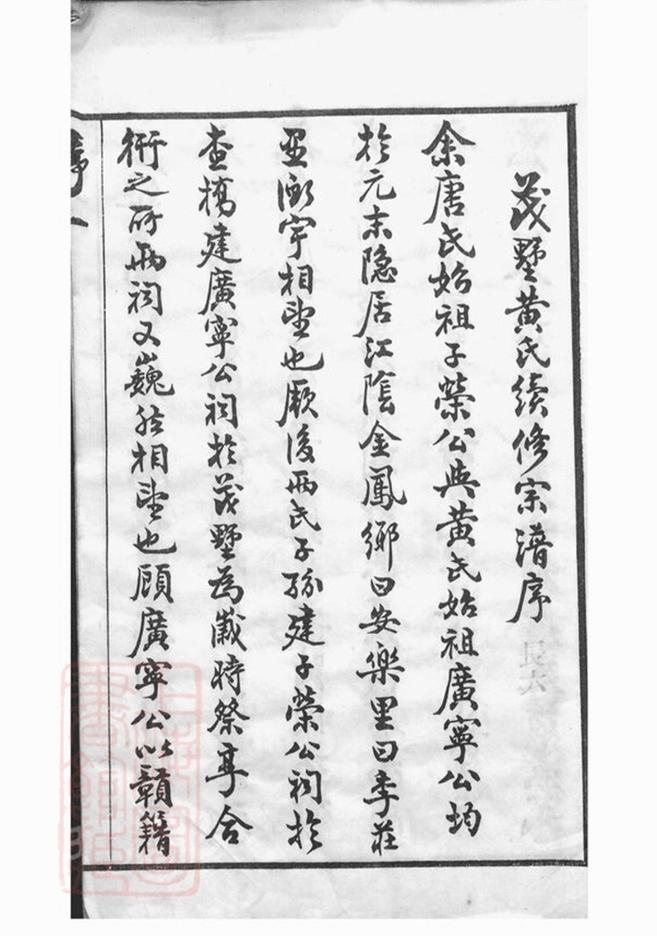 茂墅黃氏續修宗譜序
余唐氏始祖子榮公與黃氏始祖廣寧公均
於元末隱居江陰金鳳鄉曰安樂里曰李莊
里衡宇相望也厥後兩氏子孫建子榮公祠於
查橋建廣寧公祠於茂墅為歲時祭享合
衎之所兩祠又巍然相望也顧廣寧公以贛籍